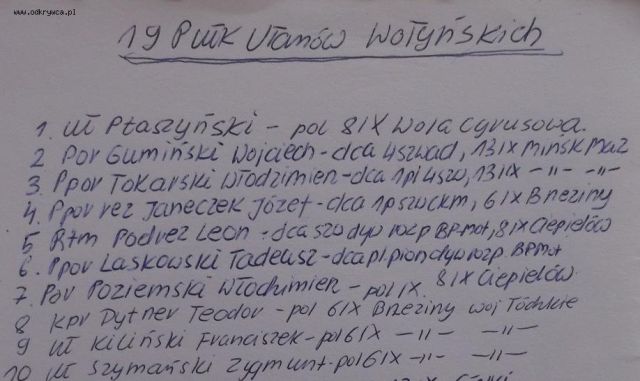 www.odkrywca.pl
19 Pułk Ułanów Wołyńskich
1. uł Ptaszyński - pol 8IX Wola Cyrusowa.
2 Por Gumiński Wojciech - dca 4szwad, 13IX Mińsk Maz
3. Ppor Tokarski Włodzimierz - dca 1pl 4szw, 13IX -"- -"-
4. Ppor rez Janeczek Józef - dca 1p szw ckm, 6IX Brzeziny
5 Rtm Podrez Leon - dca szw dyw rozp BPMot, 8IX Ciepielów
6. Ppor Laskowski Tadeusz - dca pl pion dyw rozp. BPMot
7. Por Poziemski Włodzimierz - pol IX. 8IX Ciepielów
8 Kpr Dytner Teodor - pol 6IX Brzeziny woj Łódzkie
9 uł Kiliński Franciszek - pol 6IX -"- -"-
10 uł Szymański Zygmunt - pol 6IX -"- -"-